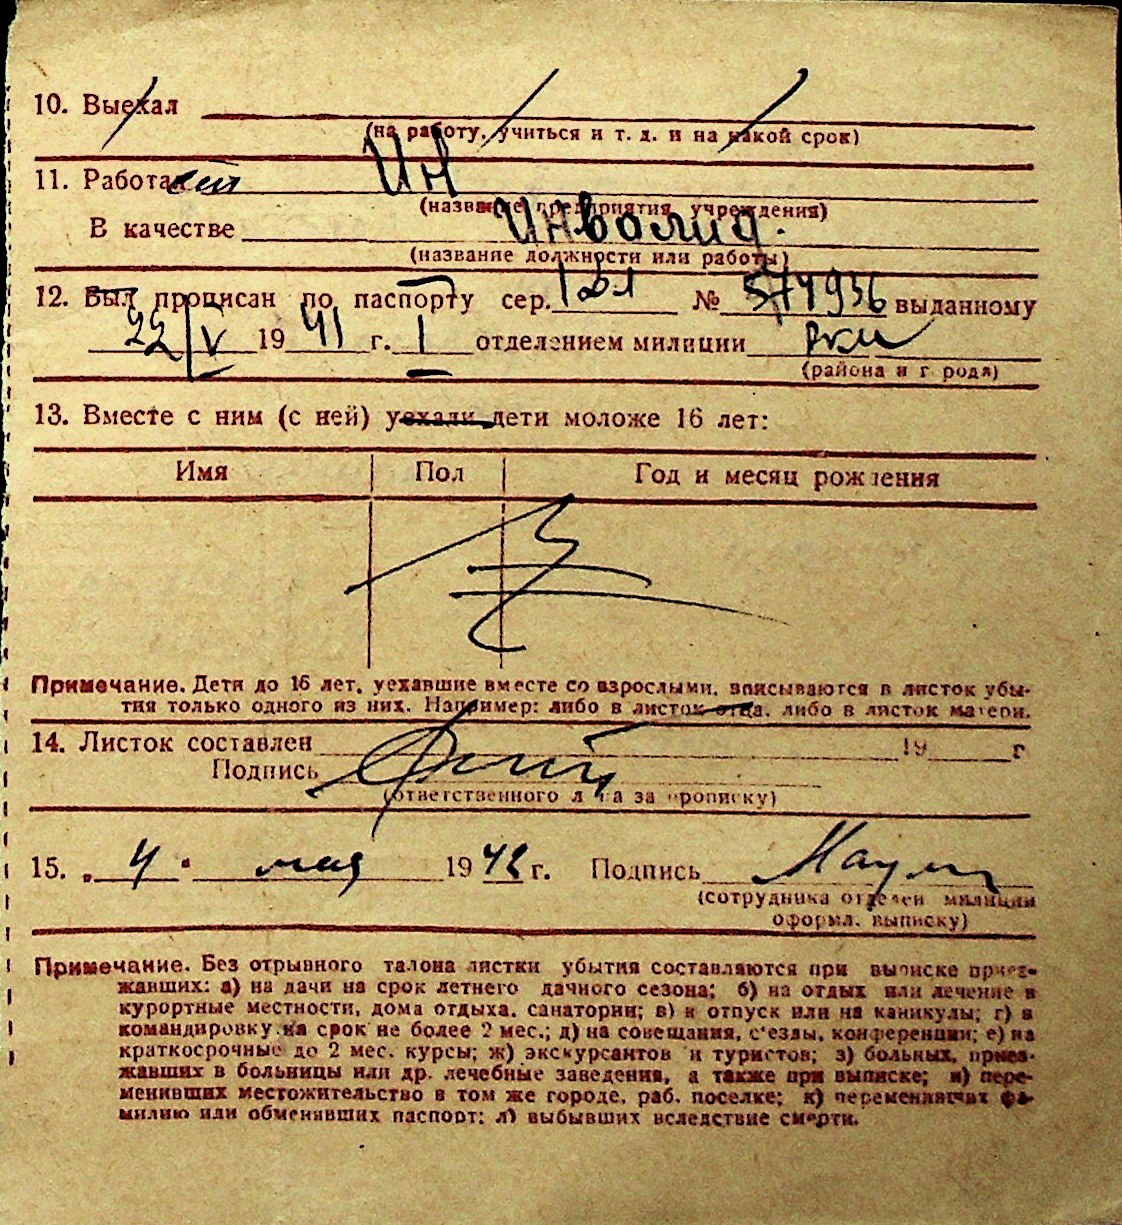 10. Выехал
(на работу, учиться и т. д. и на какой срок)
11. Работал Ин
(название предприятия, учреждения)
В качестве Инвалид.
(название должности или работы)
12. Был прописан по паспорту сер. № 574936 выданному
22/V 1941 г. I отделением милиции РКМ
(района и г рода)
13. Вместе с ним (с ней) уехали дети моложе 16 лет:
Имя Пол Год и месяц рождения
Примечание. Дети до 16 лет, уехавшие вместе со взрослыми, вписываются в листок убы-
тия только одного из них. Например: либо в листок отца, либо в листок матери.
14. Листок составлен 19 г
Подпись
(ответственного лица за прописку)
15. „4" мая 1942 г. Подпись
(сотрудника отделен милиции
оформл. выписку)
Примечание. Без отрывного талона листки убытия составляются при выписке приез-
жавших: а) на дачи на срок летнего дачного сезона; б) на отдых или лечение в
курортные местности, дома отдыха, санатории; в) в отпуск или на каникулы; г) в
командировку на срок не более 2 мес.; д) на совещания, с'езды, конференции; е) на
краткосрочные до 2 мес. курсы; ж) экскурсантов и туристов; з) больных, приез-
жавших в больницы или др. лечебные заведения, а также при выписке; и) пере-
менивших местожительство в том же городе, раб. поселке; к) переменивших фа-
милию или обменявших паспорт; л) выбывших вследствие смерти.